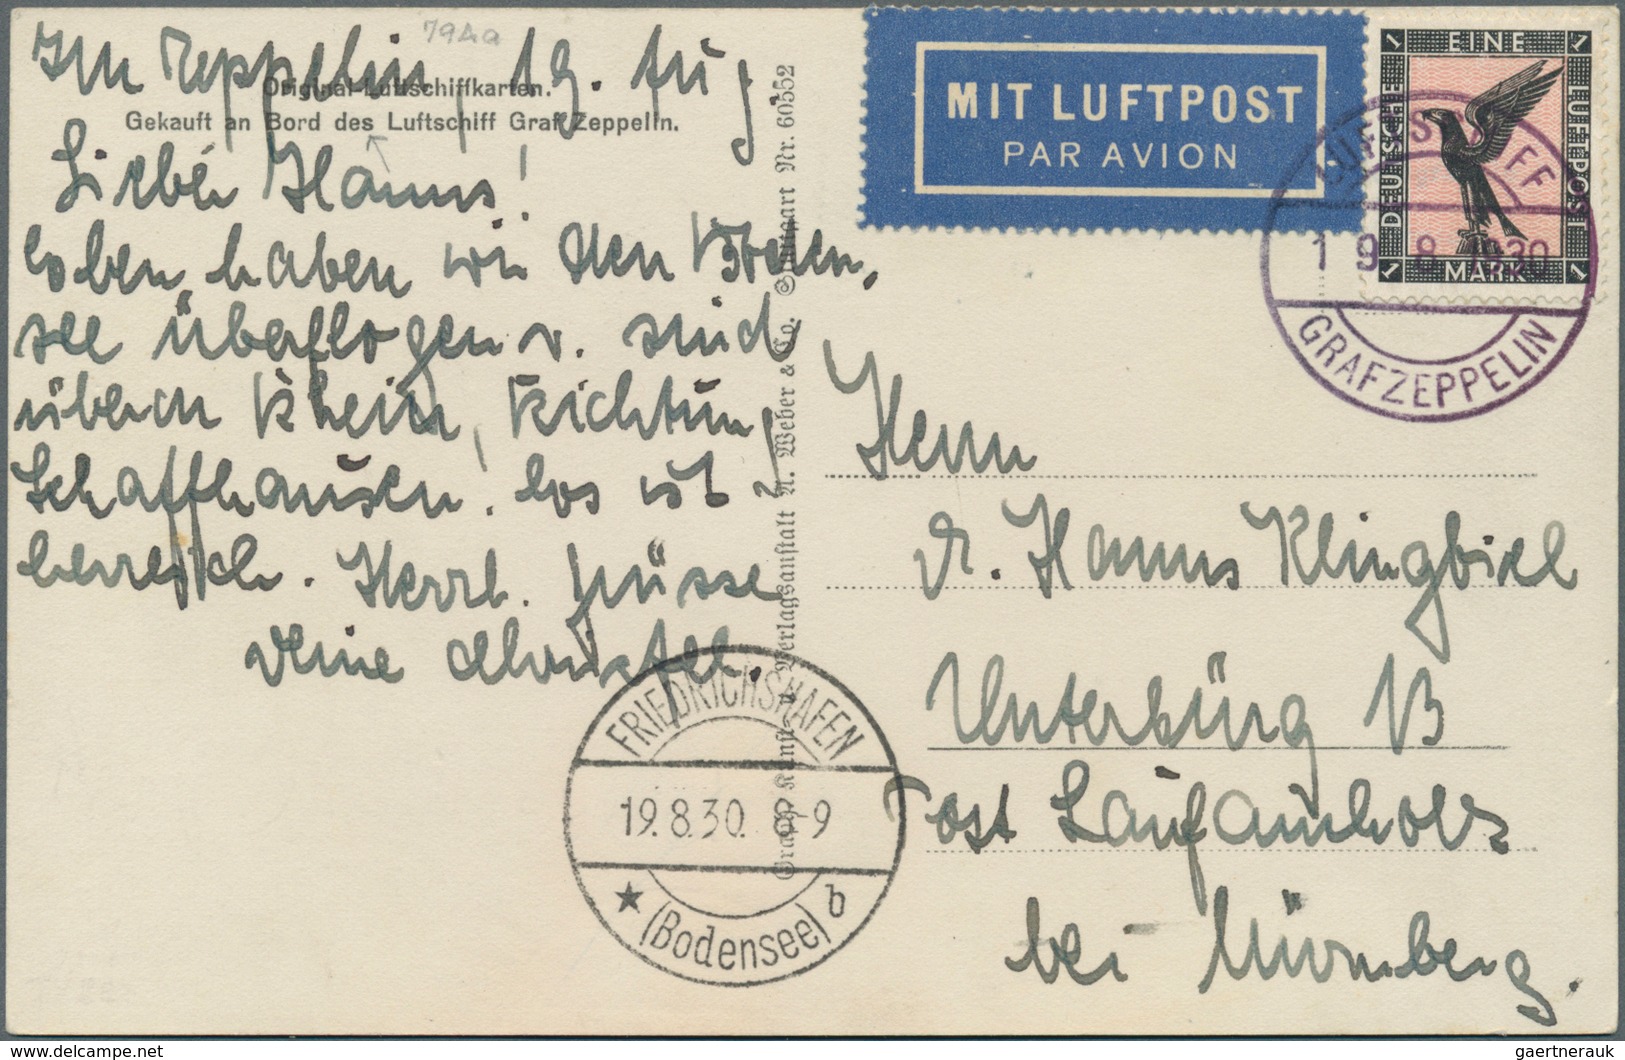 794a
Im Zeppelin, 19. Aug.
Original-Luftschiffkarten.
Gekauft an Bord des Luftschiff Graf Zeppelin.
Lieber Hanns!
Soeben haben wir den Boden-
see überflogen u. sind
überm Rhein, Richtung
Schaffhausen! Es ist
herrlich. Herzl. Grüsse
Deine
Graph. Kunst- u. Verlagsanstalt A. Weber & Co. Stuttgart Nr. 60552
MIT LUFTPOST
PAR AVION
1 EINE 1
DEUTSCHE LUFTPOST
1 MARK 1
LUFTSCHIFF
19.8.1930
GRAF ZEPPELIN
Herrn
Dr. Hanns Klingbiel
Unterbürg 13
Post Laufamholz
bei Nürnberg.
FRIEDRICHSHAFEN
19.8.30. 8-9
★ (Bodensee) b
gaertnerauk